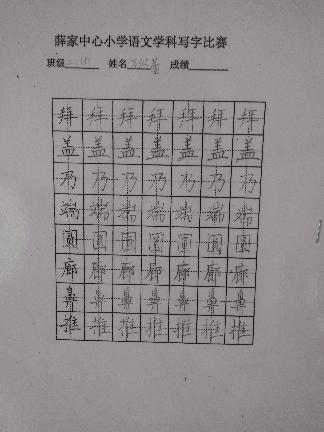 薛家中心小学语文学科写字比赛
班级 姓名 成绩
拜 拜 拜 拜 拜 拜 拜
盖 盖 盖 盖 盖 盖 盖
乃 乃 乃 乃 乃 乃 乃
端 端 端 端 端 端 端
圆 圆 圆 圆 圆 圆 圆
廊 廊 廊 廊 廊 廊 廊
鼻 鼻 鼻 鼻 鼻 鼻 鼻
推 推 推 推 推 推 推